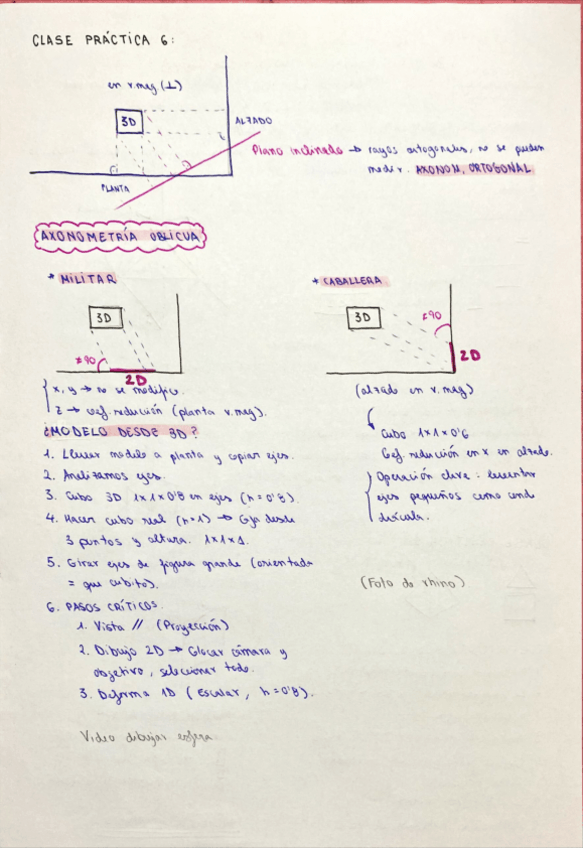 CLASE PRÁCTICA 6:
en v.mag (⊥)
3D
ALZADO
PLANTA
Plano inclinado → rayos ortogonales, no se pueden
medir. AXONOM. ORTOGONAL
AXONOMETRÍA OBLICUA
* MILITAR
3D
≠90
2D
x, y → no se modifica.
z → coef. reducción (planta v.mag).
¿MODELO DESDE 3D?
1. Llevar modelo a planta y copiar ejes.
2. Analizamos ejes.
3. Cubo 3D 1x1x0'8 en ejes (h=0'8).
4. Hacer cubo real (h=1) → Caja desde
3 puntos y altura. 1x1x1.
5. Girar ejes de figura grande (orientada
= que cubito).
6. PASOS CRÍTICOS.
1. Vista // (Proyección)
2. Dibujo 2D → Colocar cámara y
objetivo, seleccionar todo.
3. Deforma 1D (Escalar, h=0'8).
Video dibujar esfera
* CABALLERA
3D
≠90
2D
(alzado en v.mag)
Cubo 1x1x0'6
Coef. reducción en x en alzado.
Operación clave: levantar
ejes pequeños como
(Foto de rhino)